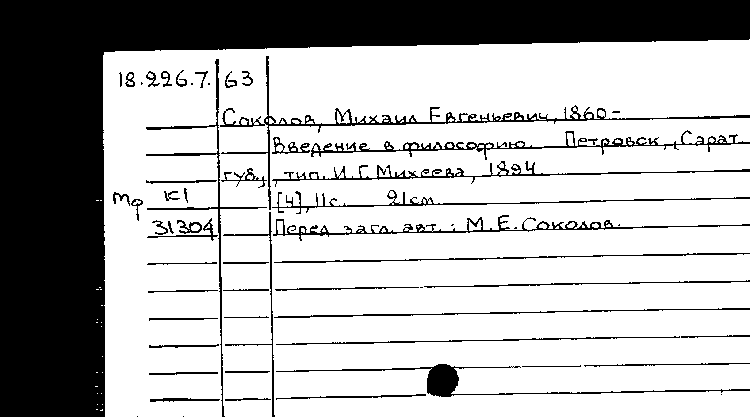 18.226.7. 63
Соколов, Михаил Евгеньевич, 1860-
Введение в философию. Петровск, Сарат.
губ., тип. И.Г. Михеева, 1894.
Мф К1 [4], 11с. 21см.
31304 Перед загл. авт.: М.Е. Соколов.